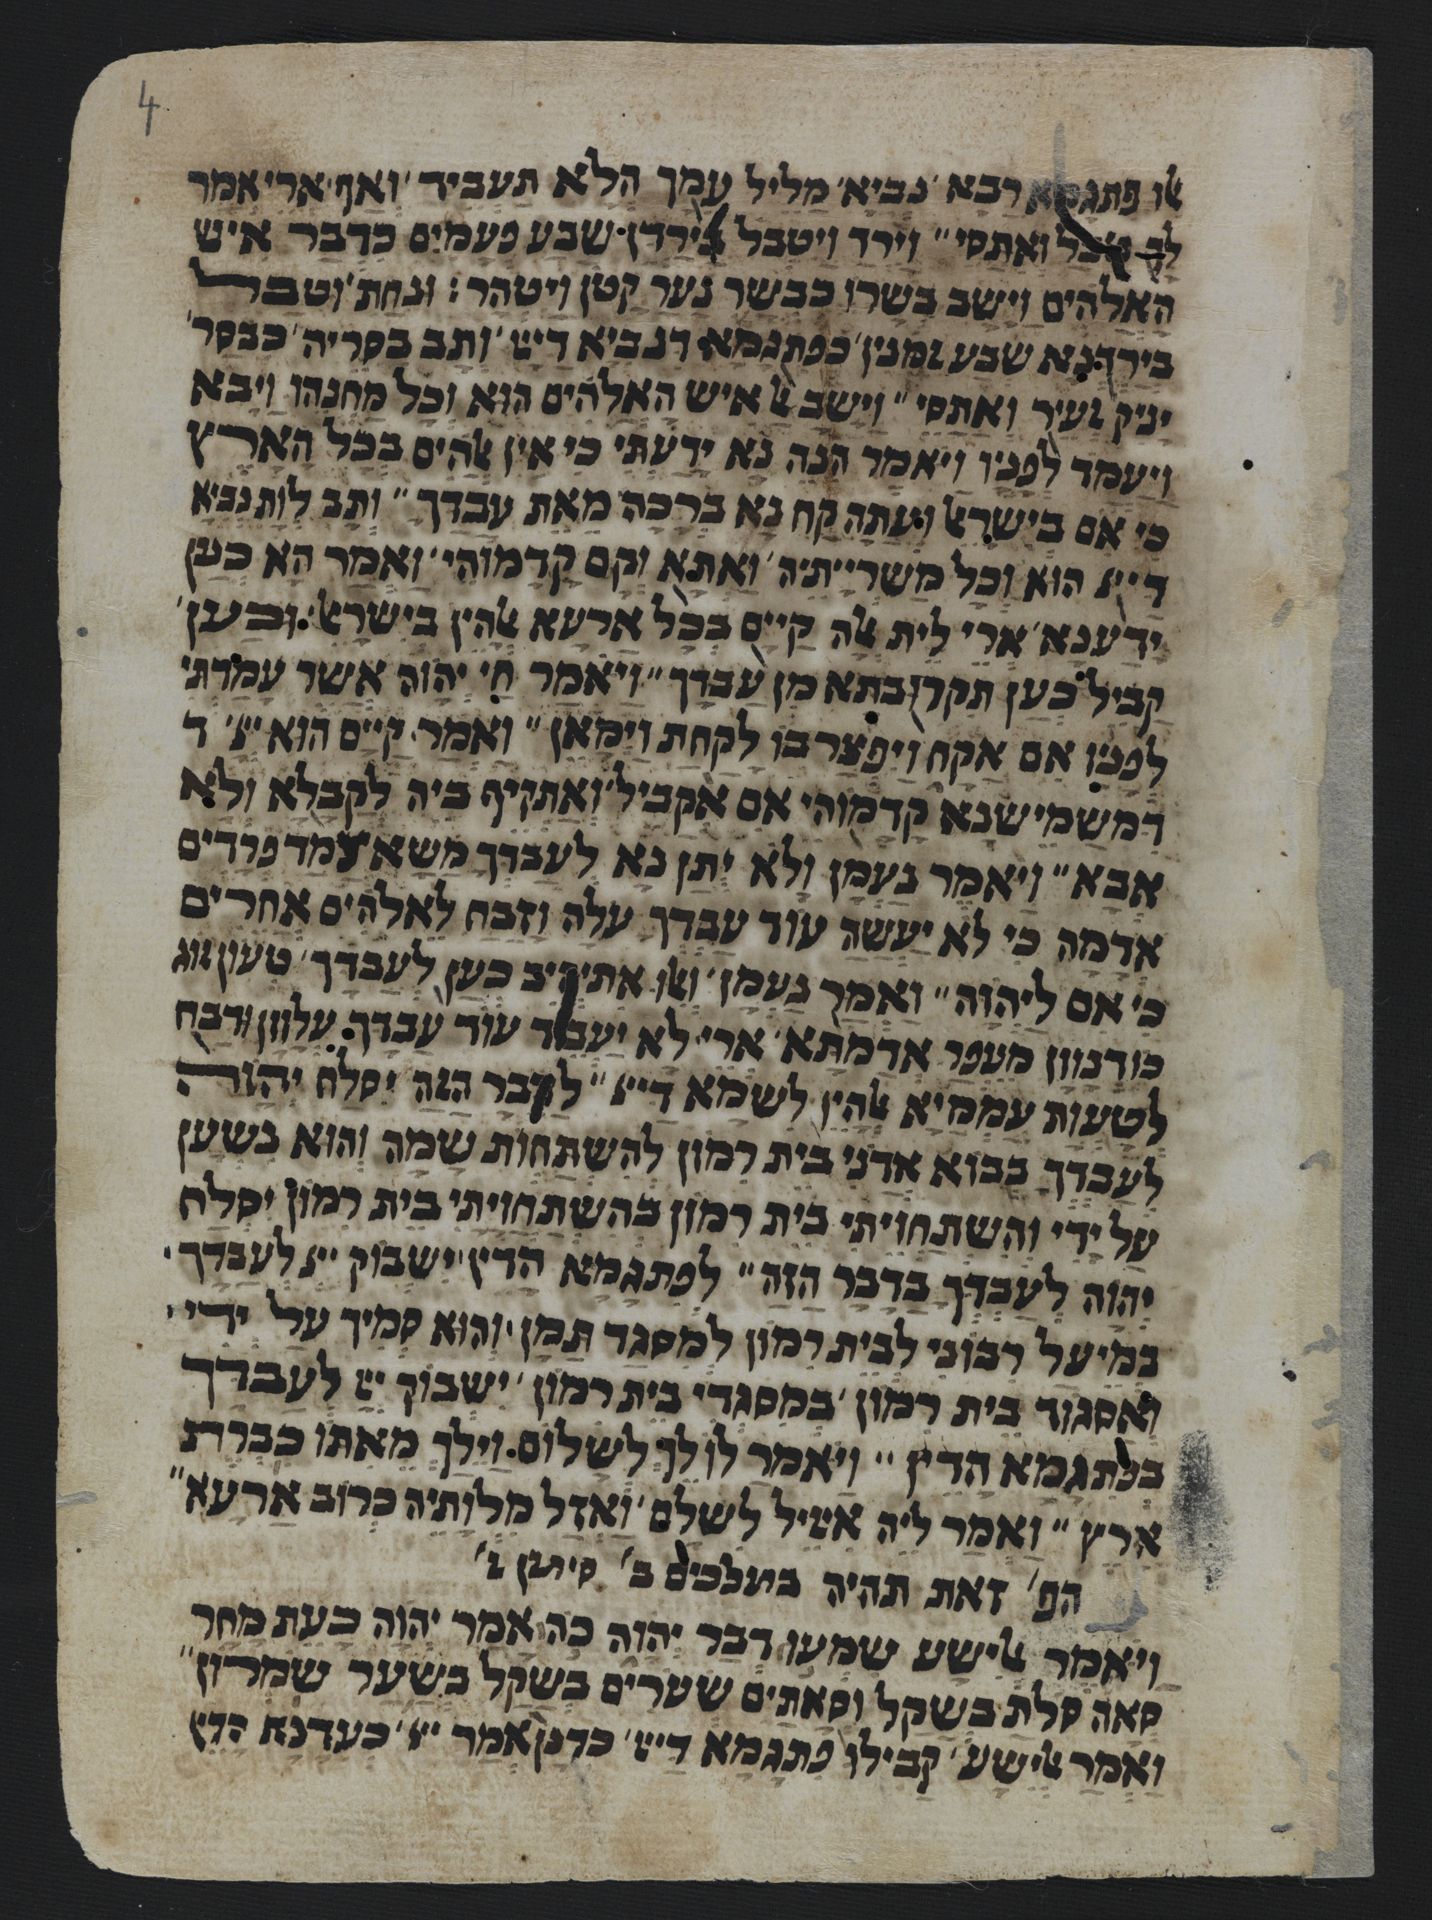 4
אלו פתגמא רבא נביא מליל עמך הלא תעביד ואף ארי אמר
לך טבל ואתסי״ וירד ויטבל בירדן שבע פעמים כדבר איש
האלהים וישב בשרו כבשר נער קטן ויטהר: ונחת וטבל
בירדנא שבע זמנין כפתגמא דנביא דיי׳ ותב בסריה כבסר
יניק זעיר ואתסי״ וישב אל איש האלהים הוא וכל מחנהו ויבא
ויעמד לפניו ויאמר הנה נא ידעתי כי אין אלהים בכל הארץ
כי אם בישראל ועתה קח נא ברכה מאת עבדך״ ותב לות נביא
דייי הוא וכל משרייתיה ואתא וקם קדמוהי ואמר הא כען
ידענא ארי לית אלה קיים בכל ארעא אלהין בישראל. וכען
קביל כען תקרובתא מן עבדך״ ויאמר חי יהוה אשר עמדתי
לפניו אם אקח ויפצר בו לקחת וימאן״ ואמר קיים הוא ייי ד
דמשמישנא קדמוהי אם אקביל ואתקיף ביה לקבלא ולא
אבא״ ויאמר נעמן ולא יתן נא לעבדך משא צמד פרדים
אדמה כי לא יעשה עוד עבדך עלה וזבח לאלהים אחרים
כי אם ליהוה״ ואמר נעמן ואלו אתיהיב כען לעבדך טעון זוג
כודנוון מעפר אדמתא ארי לא יעביד עוד עבדך עלוון ודבח
לטעות עממיא אלהין לשמא דייי״ לדבר הזה יסלח יהוה
לעבדך בבוא אדני בית רמון להשתחות שמה והוא נשען
על ידי והשתחויתי בית רמון בהשתחויתי בית רמון יסלח
יהוה לעבדך בדבר הזה״ לפתגמא הדין ישבוק ייי לעבדך
במיעל רבוני לבית רמון למסגד תמן והוא סמיך על ידי
ואסגוד בית רמון במסגדי בית רמון ישבוק ייי לעבדך
בפתגמא הדין״ ויאמר לו לך לשלום. וילך מאתו כברת
ארץ״ ואמר ליה איזיל לשלם ואזל מלותיה כרוב ארעא״
הפ׳ זאת תהיה במלכים ב׳ סימן ז׳
ויאמר אלישע שמעו דבר יהוה כה אמר יהוה כעת מחר
סאה סלת בשקל וסאתים שערים בשקל בשער שמרון״
ואמר אלישע קבילו פתגמא דייי כדנן אמר ייי כעדנא הדין